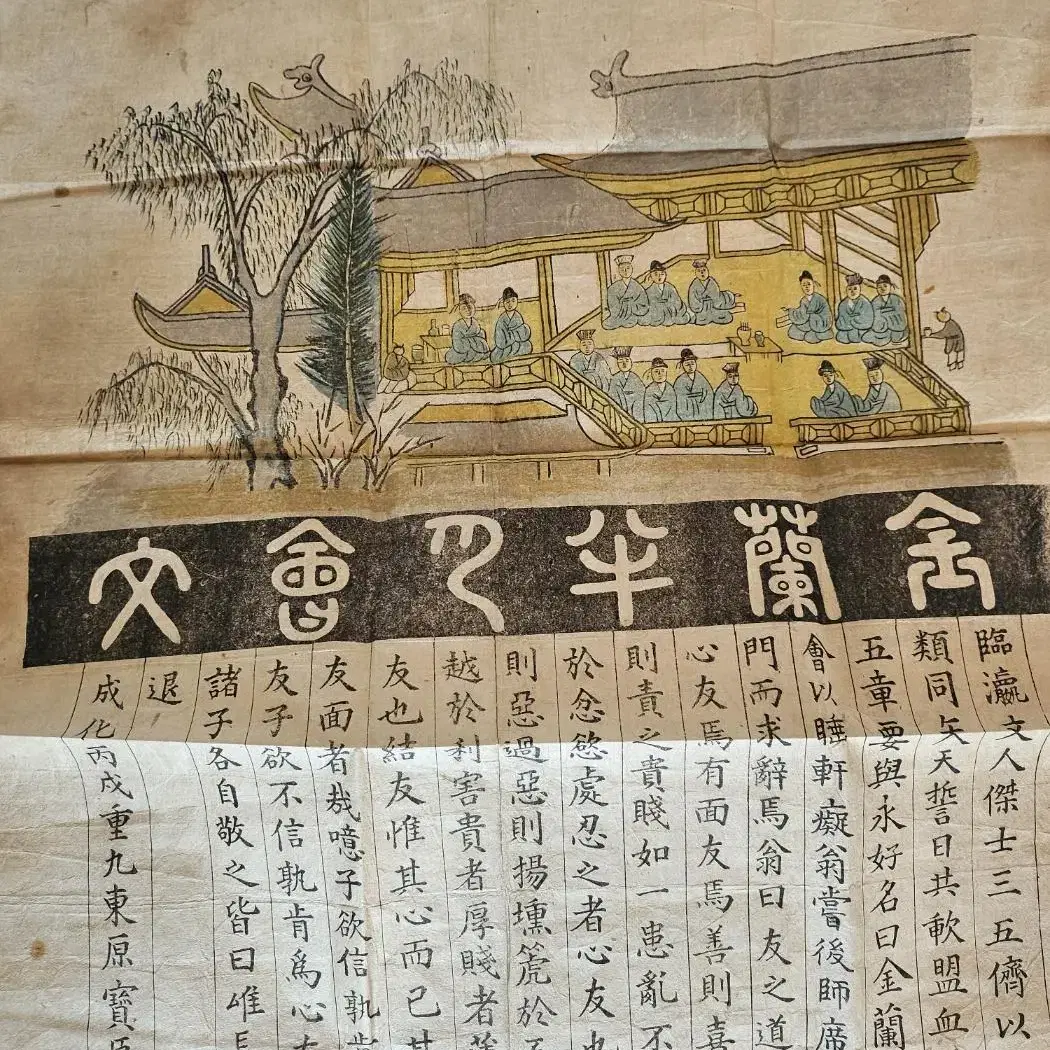 金蘭半月會文
臨瀛文人傑士三五儕以
類同矢天誓日共軟盟血
五章要與永好名曰金蘭
會以睡軒癡翁嘗後師席
門而求辭焉翁曰友之道
心友焉有面友焉善則喜
則責之貴賤如一患亂不
於忿慾處忍之者心友也
則惡過惡則揚壎箎於
越於利害貴者厚賤者
友也結友惟其心而已其
友面者哉噫子欲信孰肯
友子欲不信孰肯爲心友
諸子各自敬之皆曰唯
退
成化丙戌重九東原寶臣